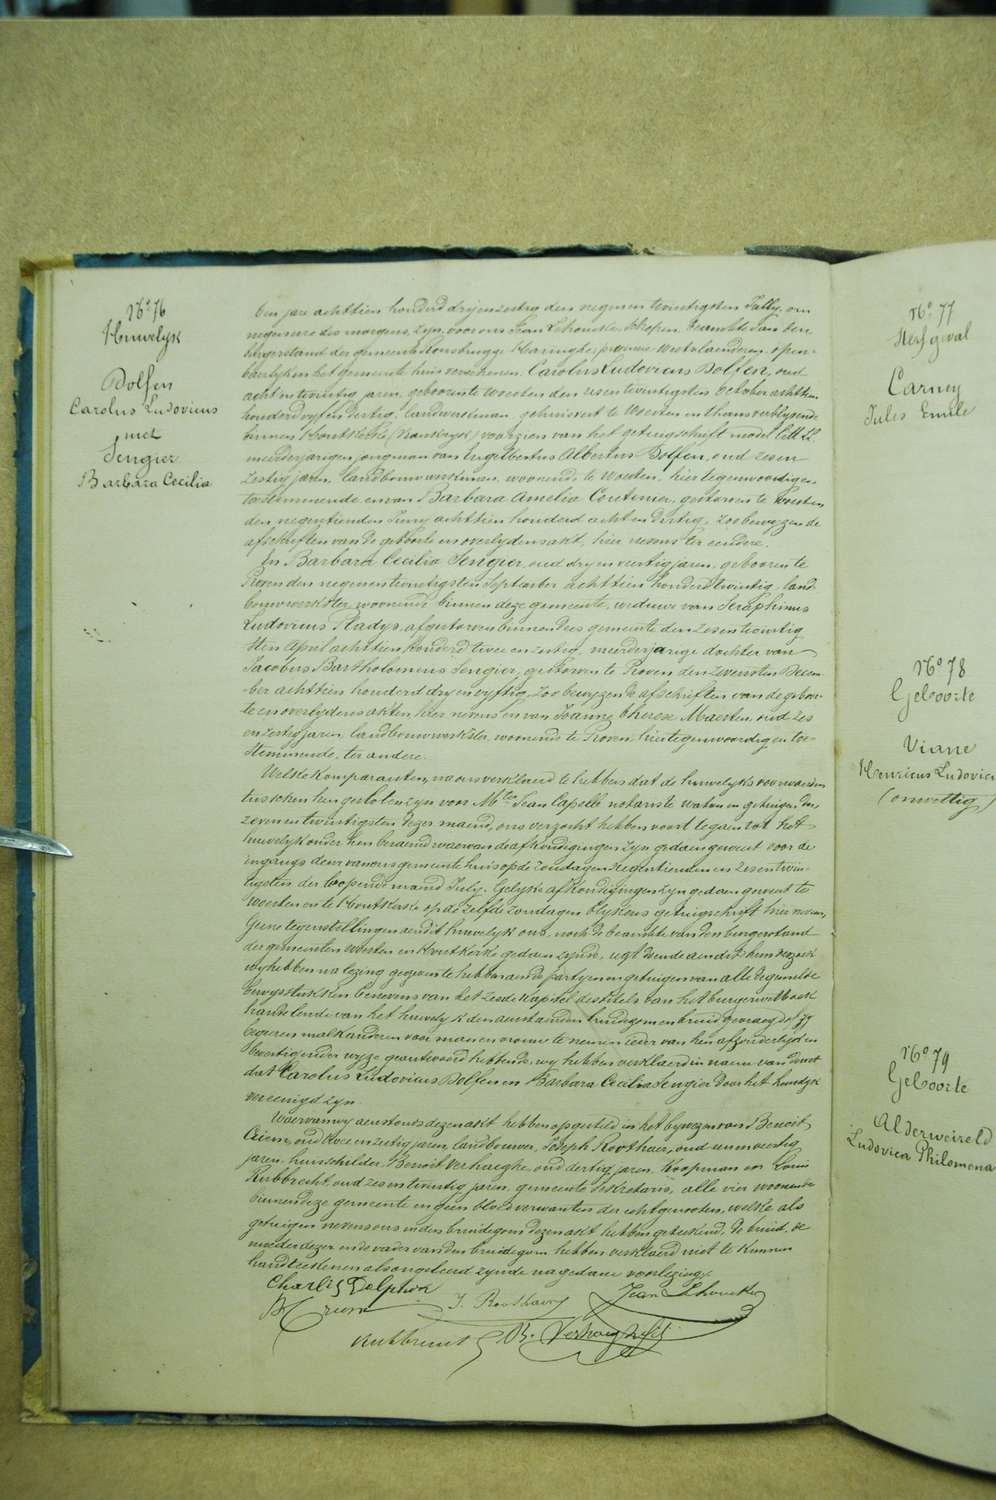 N.º 76
Huwelyk
Dolfen
Carolus Ludovicus
met
Sengier
Barbara Cecilia
Den jare achttien honderd dryenzestig den negenen twintigsten July, om
negen ure des morgens, zyn, voor ons Jean Lehoucke Schepen Beambte van den
burgerstand der gemeente Rousbrugge Haringhe, provincie Westvlaenderen, open-
baerlyk in het gemeente huis verschenen. Carolus Ludovicus Dolfen, oud
acht en twintig jaren, geboren te Woesten den zesentwintigsten October achttien
honderd vyfendertig, landwerkman, gehuisvest te Woesten en thans verblyvende
binnen Houtkerke (Vrankryk) voorzien van het getuigschrift model lett.
meerderjarigen jongman van Engelbertus Albertus Dolfen, oud zesen
zestig jaren, landbouwwerkman, woonende te Woesten, hier tegenwoordig en
toestemmende en van Barbara Amelia Coutenier, gestorven te Woesten
den negentienden Juny achttien honderd acht en dertig, zoo bewyzen de
afschriften van de geboorte en overlydensakt, hier nevens ter eendere.
En Barbara Cecilia Sengier, oud dry en veertig jaren, gebooren te
Proven den negenentwintigsten September achttien honderd twintig, land-
bouwwerkster, woonende binnen deze gemeente, weduwe van Seraphinus
Ludovicus Stadys, afgestorven binnen dees gemeente den zesentwintig
sten April achttien honderd twee en zestig, meerderjarige dochter van
Jacobus Bartholomeus Sengier, gestorven te Proven den zevensten Decem-
ber achttien honderd dry en vyftig, zoo bewyzen de afschriften van de geboor-
te en overlydens akten hier nevens en van Joanna Therese Maerten, oud zes
en zestig jaren, landbouwwerkster, woonende te Proven, hier tegenwoordig en toe-
stemmende, ter andere.
Welke komparanten, na ons verklaerd te hebben dat de huwelyks voorwaerden
tusschen hen gesloten zyn voor Mter Jean Capelle notaris te Watou en getuigen den
zevenentwintigsten dezer maend, ons verzocht hebben voort te gaen tot het
huwelyk onder hen beraemd waervan de afkondigingen zyn gedaen geweest voor de
ingangs deur van ons gemeente huis op de zondagen negentienden en zesentwin-
tigsten der loopende maend July. Gelyke afkondigingen zyn gedaen geweest te
Woesten en te Houtkerke op de zelfde zondagen blykens getuigschrift hier nevens,
Geene tegenstellingen aen dit huwelyk ons, noch de beambte van den burgerstand
der gemeenten Woesten en Houtkerke gedaen zynde, regt doende aen dit hun verzoek
wy hebben na lezing gegeven te hebben aen de partyen en getuigen van alle de gemelde
bewysstukken benevens van het zesde kapittel des titels van het burgerwetboek
handelende van het huwelyk den aenstaenden bruidegom en bruid gevraegd of zy
begeeren malkanderen voor man en vrouw te nemen ieder van hen afzonderlyk en
bevestigender wyze geantwoord hebbende, wy hebben verklaerd in naem van de wet
dat Carolus Ludovicus Dolfen en Barbara Cecilia Sengier door het huwelyk
vereenigd zyn.
Waer van wy aenstonds dezen akt hebben opgesteld in het bywezen van Benoit
Criem, oud twee en zestig jaren, landbouwer, Joseph Roothaer, oud eenen veertig
jaren, huisschilder, Benoit Verhaeghe, oud dertig jaren, koopman en Louis
Rubbrecht oud zes en twintig jaren, gemeente sekretaris, alle vier woonende
binnen deze gemeente en geen bloedverwanten der echtgenooten, welke als
getuigen nevens ons en den bruidegom dezen akt hebben geteekend, de bruid, de
moeder dezer en de vader van den bruidegom hebben verklaerd niet te kunnen
handteekenen als ongeleerd zynde na gedane voorlezing.
Charles Dolphen
Jean Lehoucke
B Criem
J. Roothaer
Rubbrecht
B. Verhaeghe fils
N.º 77
Sterfgeval
Carney
Jules Emile
N.º 78
Geboorte
Viane
Henricus Ludovicus
(onwettig)
N.º 79
Geboorte
Alderweireld
Ludovica Philomena